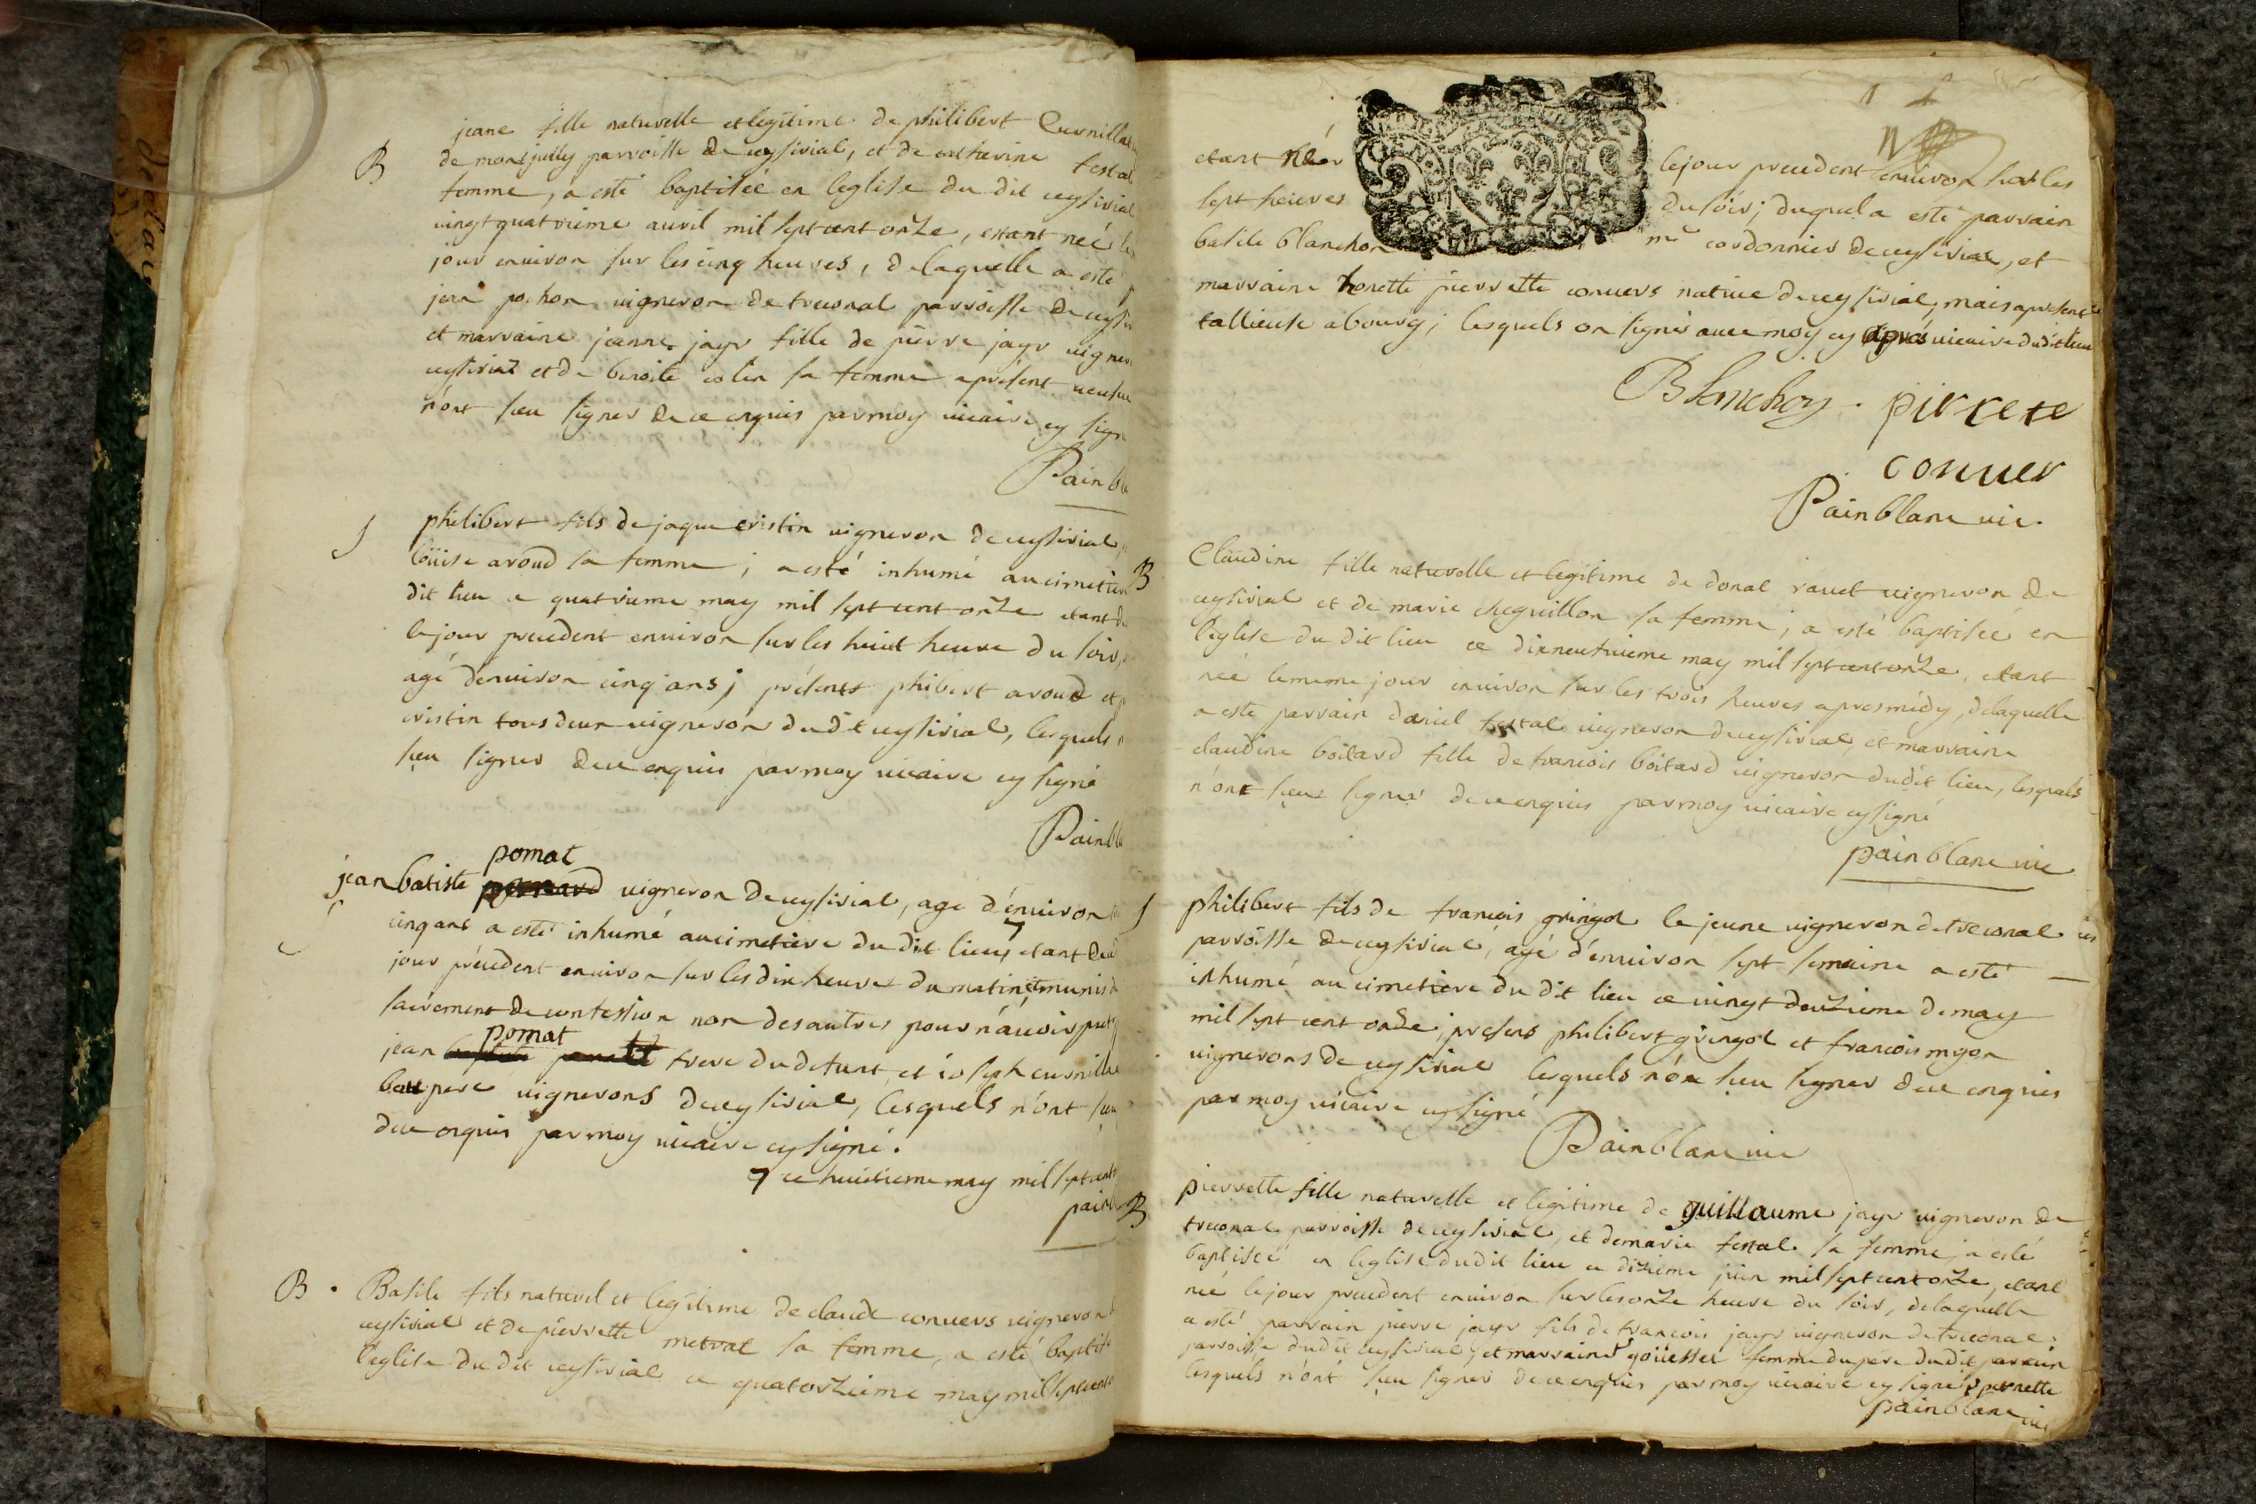 jeane fille naturelle et legitime de philibert Curnilla
B de monjully parroisse de ceysiriat, et de catherine festal
femme, a esté baptisée en leglise du dit ceysiriat
vingt quatrieme auril mil sept cent onze, estant neé le
jour enuiron sur les cinq heures, delaquelle a esté
jean pochon vigneron de treconat parroisse de ceysi
et marraine jeanne jayr fille de pierre jayr vigner
ceysiriat et de benoite sa femme apresent
n'ont sceu signer de ce enquis par moy vicaire cy sign
Painbl
philibert fils de jaque cristin vigneron de ceysiriat
loüise aroud sa femme; a esté inhumé au cimetier
dit lieu ce quatrieme may mil sept cent onze etant d
le jour precedent enuiron sur les huict heure du soir,
agé d'enuiron cinq ans; présents phibert aroud et
cristin tous deux vigneron dudit ceysiriat, lesquels n
sceu signer de ce enquis par moy vicaire cy signé
Painbl
pomat
jean batiste vigneron de ceysiriat, age d'enuiron
cinq ans a esté inhumé au cimetiere du dit lieu etant dec
jour précedent enuiron sur les dix heures du matin et munis d
sacrement de confession non des autres pour n'auoir peut
pomat
jean frere du defunt, et ioseph curnilla
beaupere vignerons de ceysiriat, lesquels n'ont sceu
de ce enquis par moy vicaire cy signé.
7 ce huictieme may mil sept cent
painbl
B. Basile fils naturel et legitime de claude conuers vigneron d
ceysiriat et de pierrette metrat sa femme, a esté baptisé
l'eglise du dit ceysiriat ce quatorzieme may mil sept cent
etant né le jour precedent enuiron sur les
sept heures du soir; duquel a esté parrain
basile blanchon me cordonnier de ceysiriat, et
marraine honette pierrette conuers natiue de ceysiriat, mais apresent
tallieuse abourg; lesquels on signés auec moy cy apres vicaire dudit lieu
Blanchon. pierete
conuer
Painblanc vic.
B Claudine fille naturelle et legitime de donat rauet vigneron de
ceysiriat et de marie cheguillon sa femme; a esté baptisée en
l'eglise du dit lieu ce dixneufuieme may mil sept cent onze, etant
neé le meme jour enuiron sur les trois heures apres midy, delaquelle
a esté parrain daniel festal vigneron de ceysiriat, et marraine
claudine boitard fille de francois boitard vigneron dudit lieu, lesquels
n'ont sceu signer de ce enquis par moy vicaire cy signé
painblanc vic
philibert fils de francois gringot le jeune vigneron de treconat
parroisse de ceysiriat, agé d'enuiron sept semaine a esté
inhumé au cimetiere du dit lieu ce vingt deuzieme de may
mil sept cent onze; presens philibert gringot et francois migon
vignerons de ceysiriat lesquels n'on sceu signer de ce enquis
par moy vicaire cy signé
Painblanc vic
B pierrette fille naturelle et legitime de guillaume jayr vigneron de
treconat parroisse de ceysiriat, et de marie festal sa femme, a esté
baptisée en leglise dudit lieu ce dixieme juin mil sept cent onze, etant
neé le jour precedent enuiron sur les onze heure du soir, delaquelle
a esté parrain pierre jayr fils de francois jayr vigneron de treconat
parroisse dudit ceysiriat, et marraine goüesset femme du pere dudit parrain
lesquels n'ont sceu signer de ce enquis par moy vicaire cy signé pernette
painblanc vic